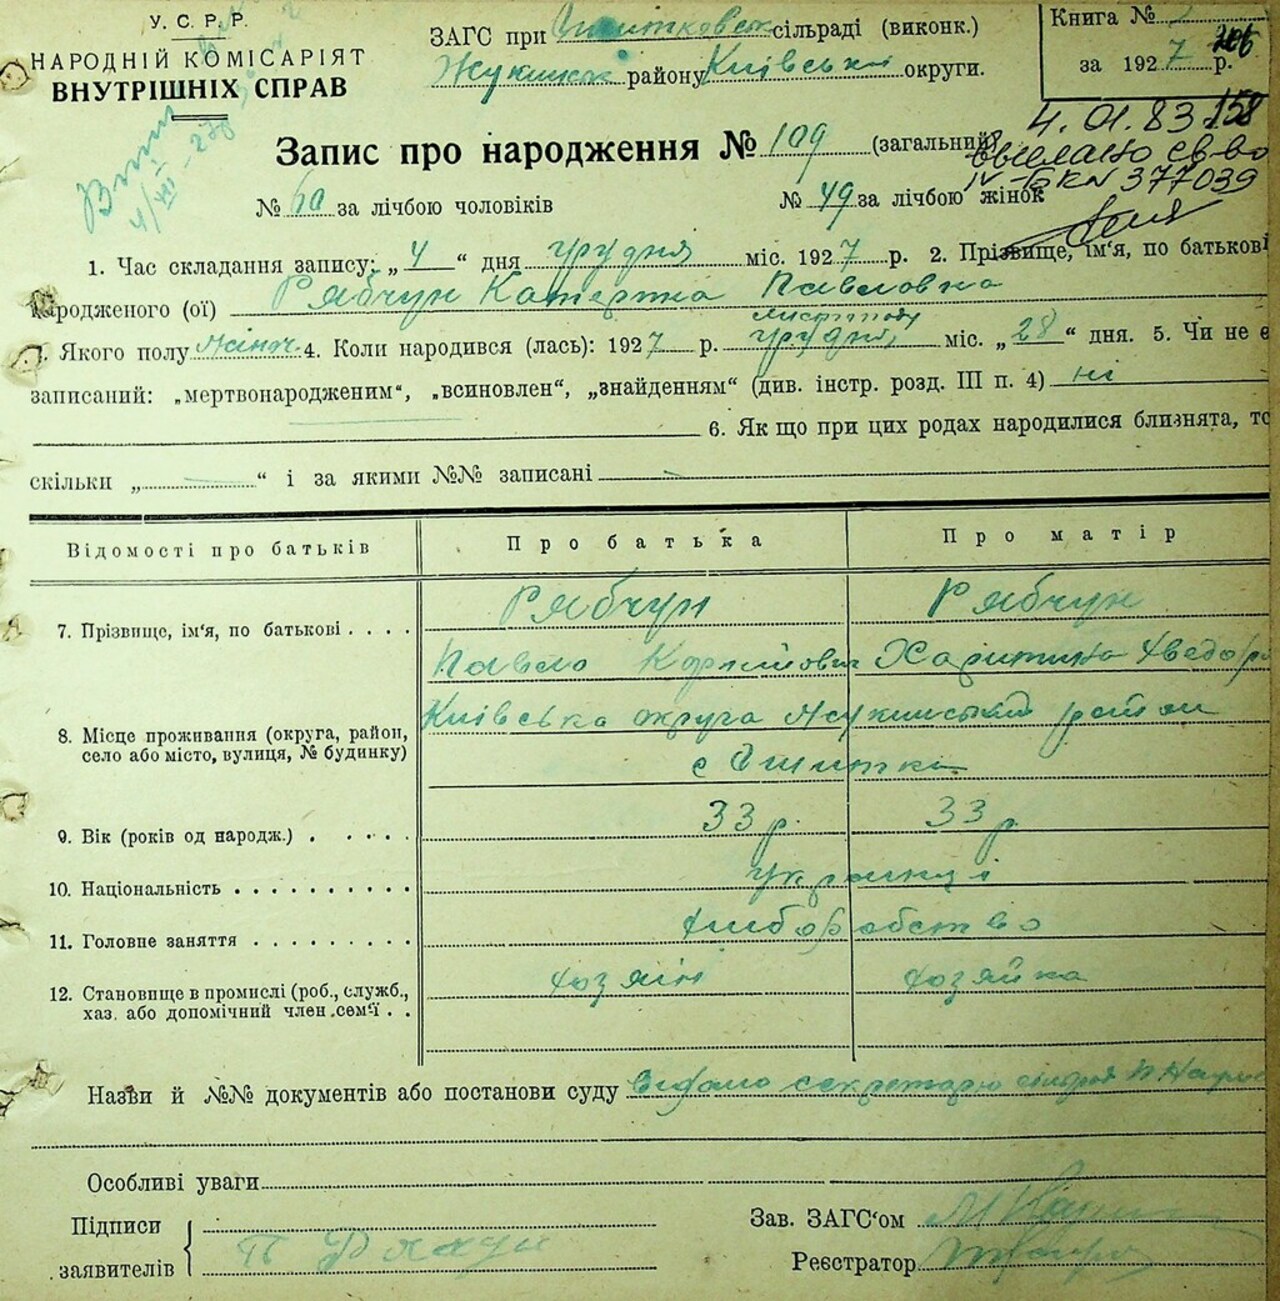 У. С. Р. Р.
НАРОДНІЙ КОМІСАРІЯТ
ВНУТРІШНІХ СПРАВ
ЗАГС при сільраді (виконк.)
району Київської округи.
Книга №
за 1927 р.
158
4.01.83
IV-БК № 377039
Запис про народження № 109 (загальний)
№ 60 за лічбою чоловіків № 49 за лічбою жінок
1. Час складання запису: „ 4 “ дня грудня міс. 1927 р. 2. Прізвище, ім‘я, по батькові
народженого (ої) Рябчун Катерина Павловна
листопаду
3. Якого полу жіноч. 4. Коли народився (лась): 1927 р. грудня міс. „ 28 “ дня. 5. Чи не є
записаний: „мертвонародженим“, „всиновлен“, „знайденням“ (див. інстр. розд. III п. 4) ні
6. Як що при цих родах народилися близнята, то
скільки „ — “ і за якими №№ записані —
Відомості про батьків Про батька Про матір
7. Прізвище, ім‘я, по батькові . . . . Рябчун Рябчун
Павло Харитина
8. Місце проживання (округа, район, село або місто, вулиця, № будинку) Київська округа Жукинський район
с
9. Вік (років од народж.) . . . . . 33 р. 33 р.
10. Національність . . . . . . . . . . українці
11. Головне заняття . . . . . . . . . хліборобство
12. Становище в промислі (роб., служб., хаз. або допомічний член сем‘ї . . хозяін хозяйка
Назви й №№ документів або постанови суду видано секретарю сільради
Особливі уваги
Підписи
заявителів П Рябчун
Зав. ЗАГС‘ом
Реєстратор